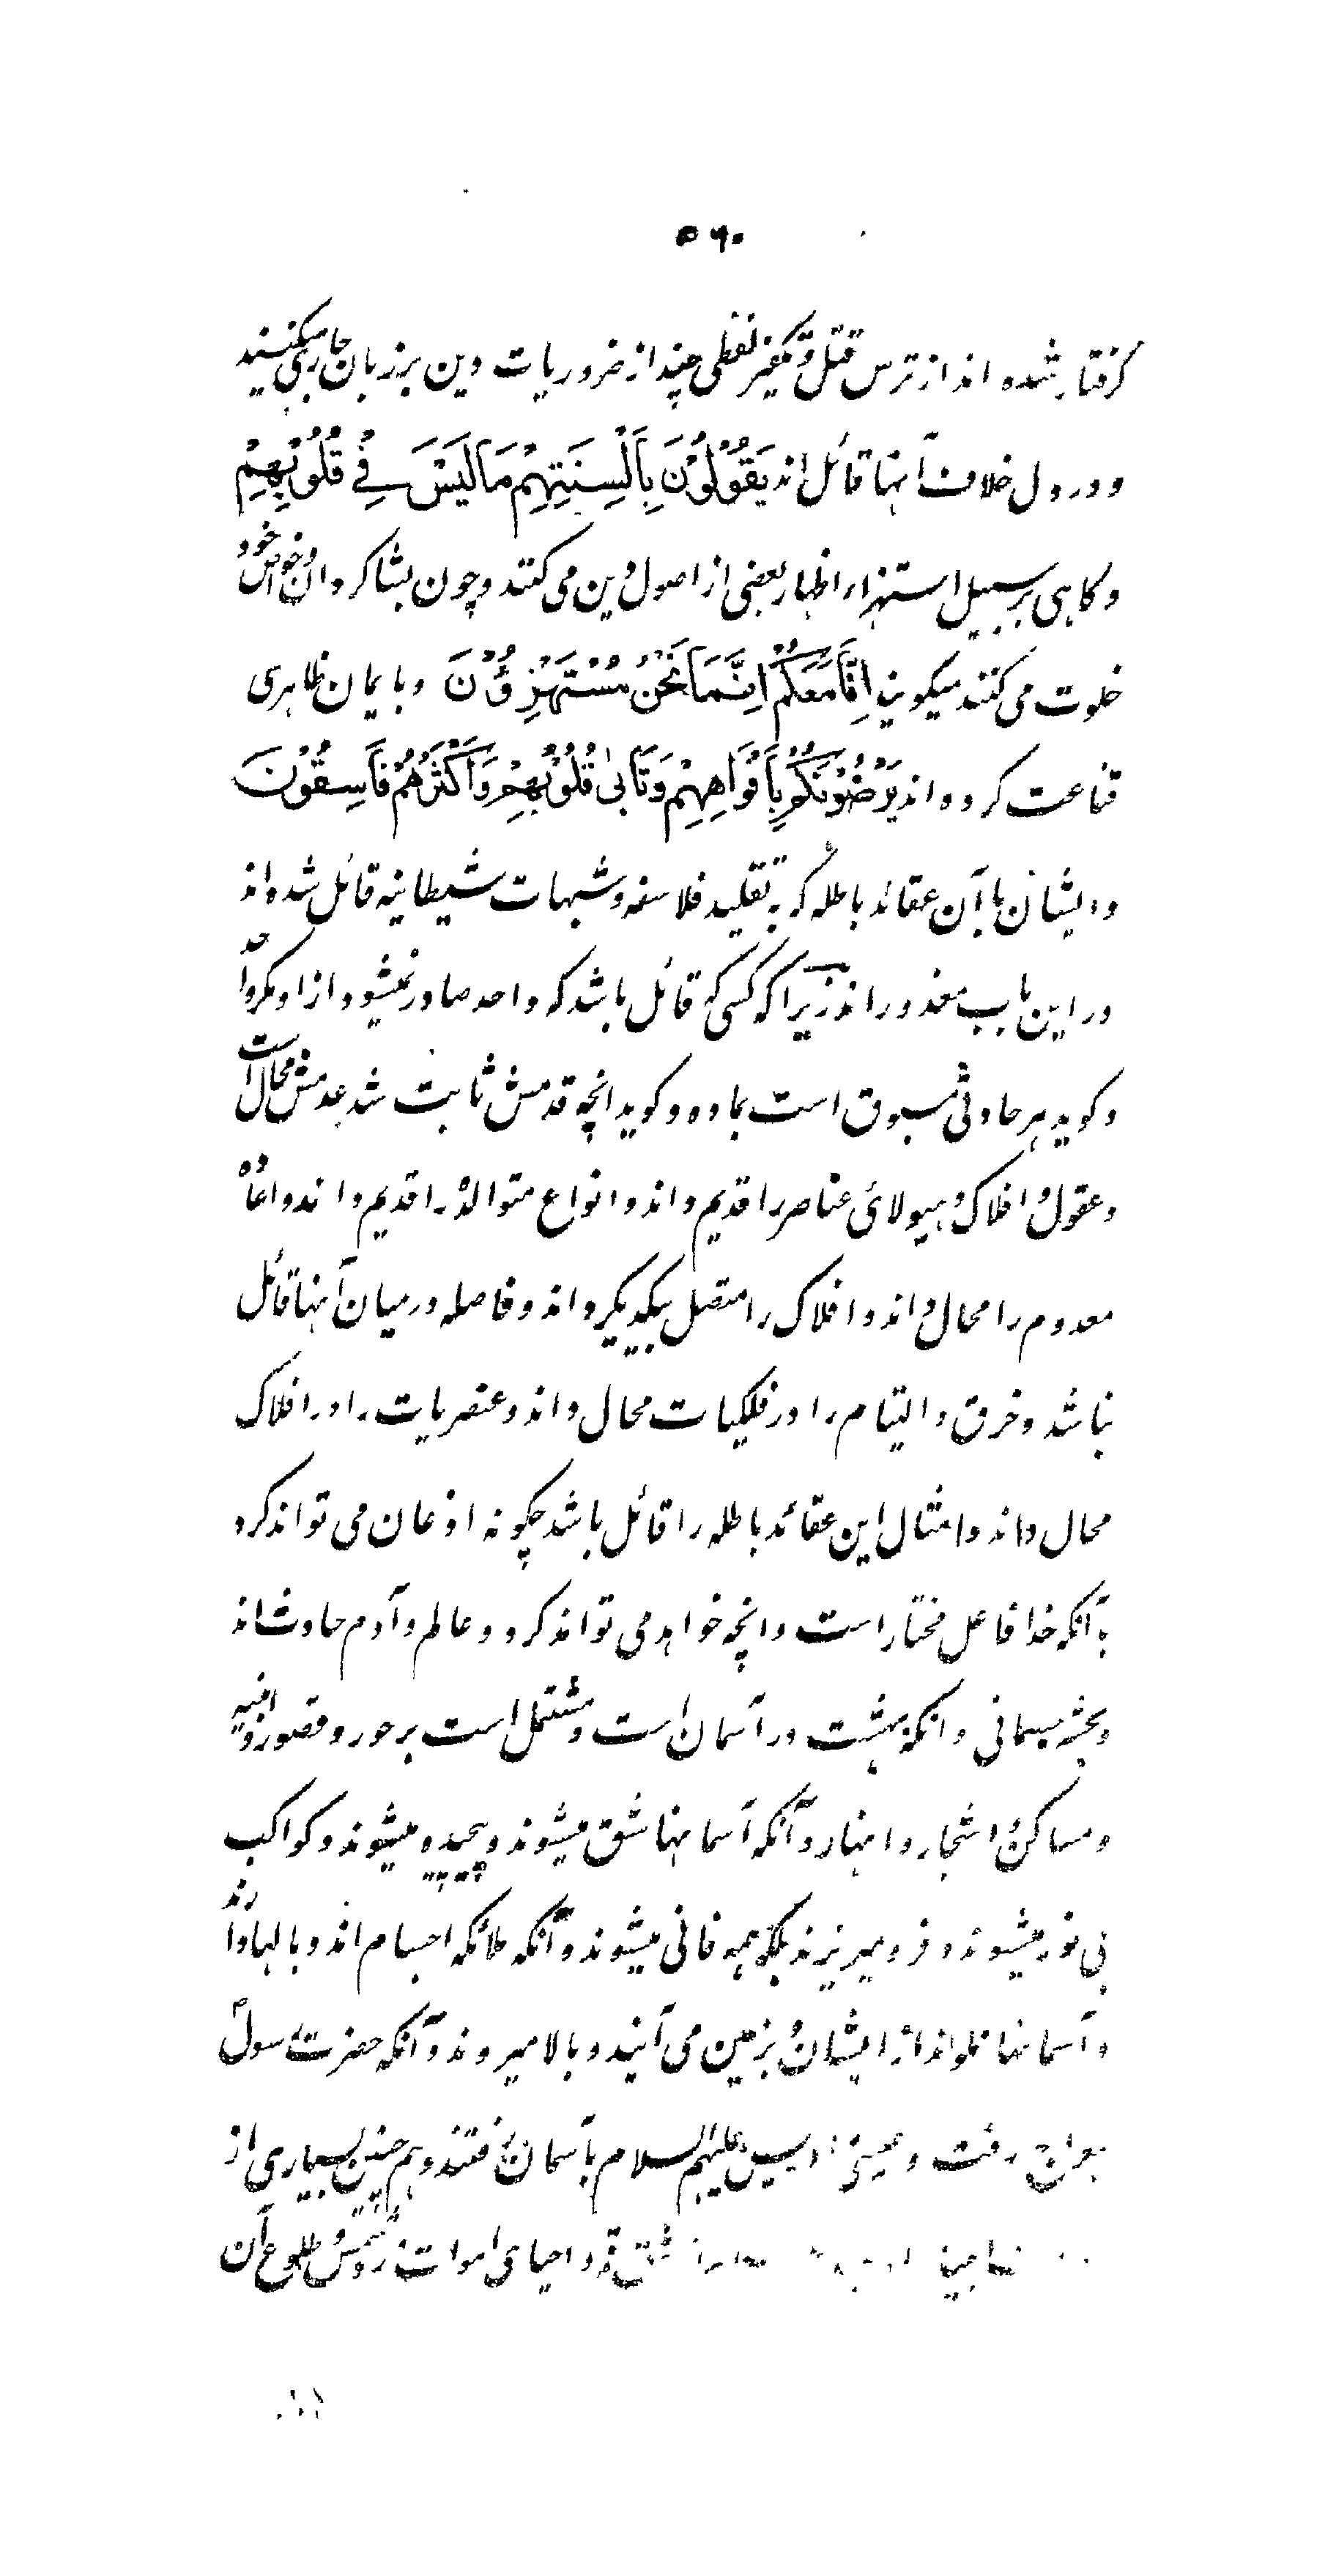 ۵۶۰
گرفتار شده اند از ترس قتل و تکفیر لفظی چند از ضروریات دین بر زبان جاری میکنند
و در دل خلاف آنها قائل اند یَقُوْلُوْنَ بِاَلْسِنَتِهِمْ مَا لَیْسَ فِیْ قُلُوْبِهِمْ
و کاهی بر سبیل استهزاء اظهار بعضی از اصول دین می کنند و چون بشاکردان و خواص خود
خلوت می کنند میکویند اِنَّا مَعَکُمْ اِنَّمَا نَحْنُ مُسْتَهْزِؤُنَ و بایمان ظاهری
قناعت کرده اند یَرْضُوْنَکُمْ بِاَفْوَاهِهِمْ وَتَاْبیٰ قُلُوْبُهُمْ وَاَکْثَرُهُمْ فَاسِقُوْنَ
و ایشان با آن عقائد باطله که به تقلید فلاسفه و شبهات شیطانیه قائل شده اند
در این باب معذور اند زیرا که کسی که قائل باشد که واحد صادر نمیشود از او مکر واحد
و کوید هر حادثی مسبوق است بماده و کوید انچه قدمش ثابت شد عدمش محال است
و عقول و افلاک و هیولائی عناصر را قدیم داند و انواع متوالده را قدیم داند و اعاده
معدوم را محال داند و افلاک را متصل بیکدیکر داند و فاصله در میان آنها قائل
نباشد و خرق و التیام را در فلکیات محال داند و عنصریات را در افلاک
محال داند و امثال این عقائد باطله را قائل باشد چکونه اذعان می تواند کرد
بآنکه خدا فاعل مختار است و انچه خواهد می تواند کرد و عالم و آدم حادث اند
و بحشر جسمانی و انکه بهشت در آسمان است و مشتمل است بر حور و قصور و ابنیه
و مساکن و اشجار و انهار و آنکه آسمانها شق میشوند و پیچیده میشوند و کواکب
بی نور میشوند و فرو میریزند بلکه همه فانی میشوند و آنکه ملائکه اجسام اند و بالها دارند
و آسمانها مملواند از ایشان و بزمین می آیند و بالا میروند و آنکه حضرت رسولؐ
بمعراج رفت و عیسی و ادریس علیهم السلام بآسمان رفتند و هم چنین بسیاری از
شق قمر و احیای اموات و رد شمس و طلوع آن